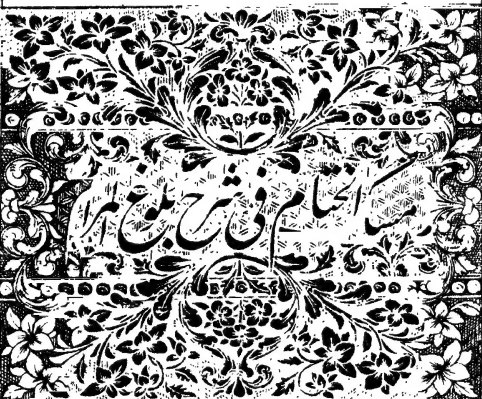 مسك الختام فی شرح بلوغ المرام